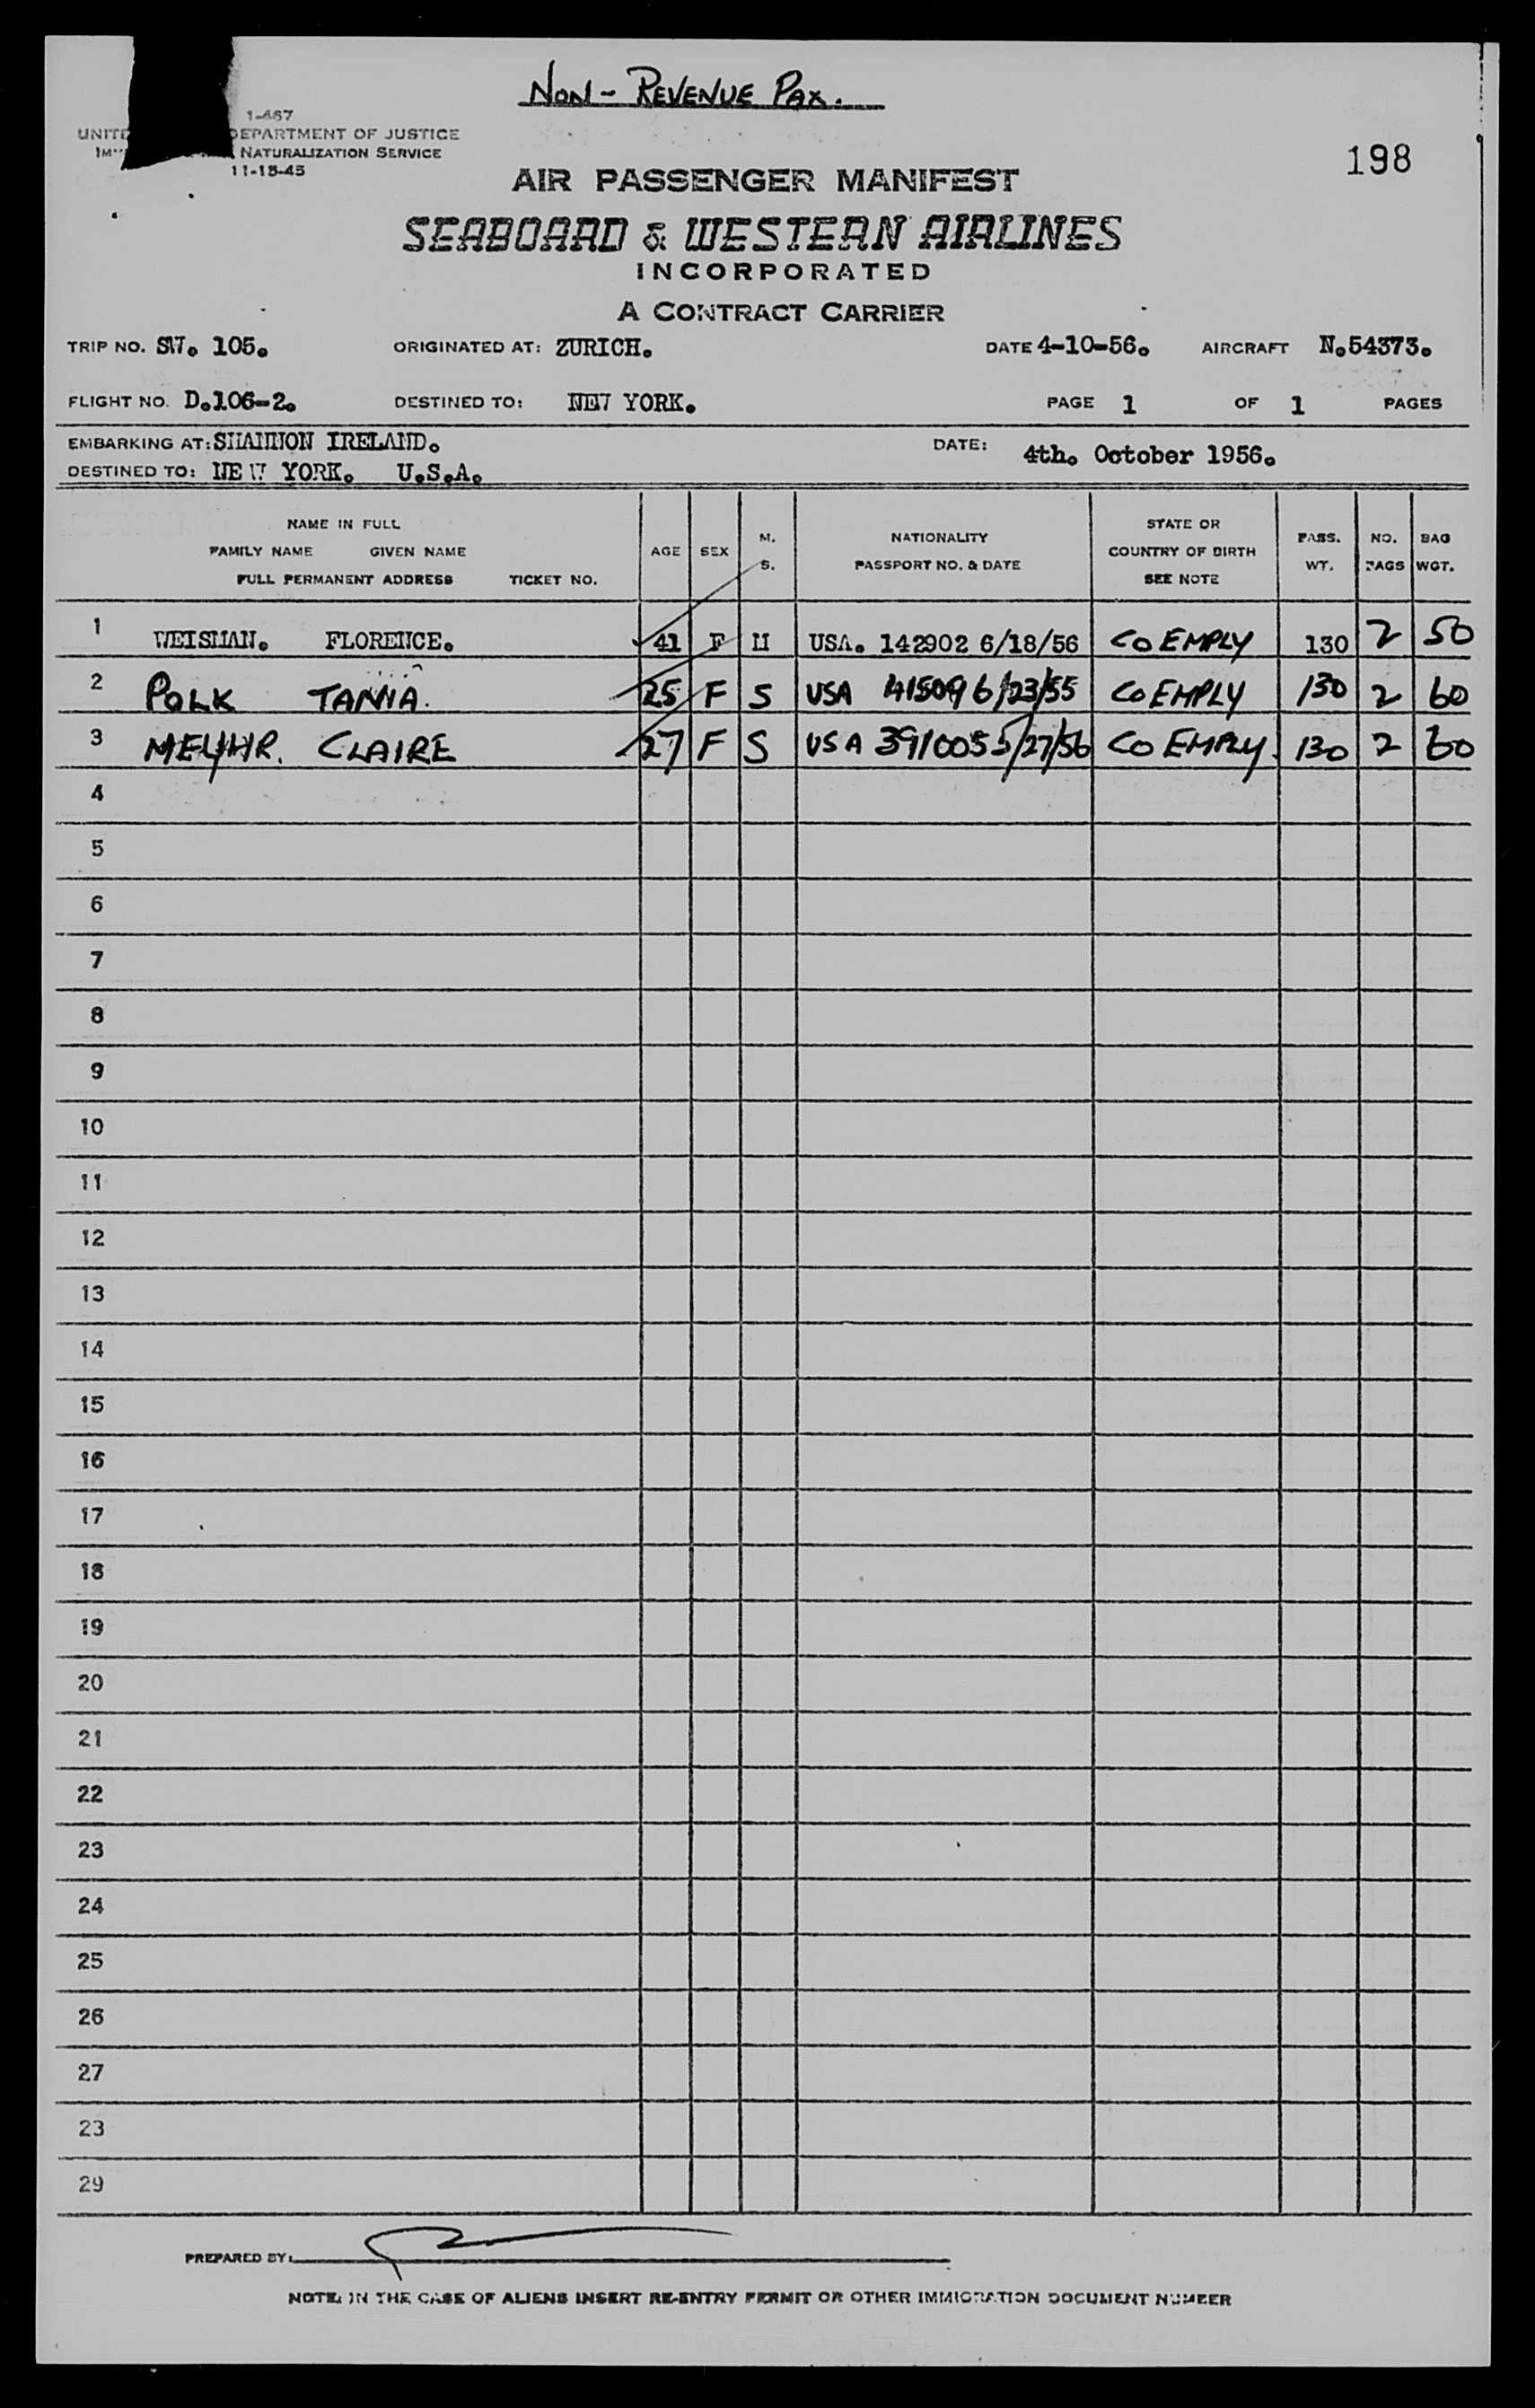 NON - REVENUE PAX.
1-467
DEPARTMENT OF JUSTICE
NATURALIZATION SERVICE
11-15-45
198
AIR PASSENGER MANIFEST
SEABOARD & WESTERN AIRLINES
INCORPORATED
A CONTRACT CARRIER
TRIP NO. SW. 105. ORIGINATED AT: ZURICH. DATE 4-10-56. AIRCRAFT N.54373.
FLIGHT NO. D.106-2. DESTINED TO: NEW YORK. PAGE 1 OF 1 PAGES
EMBARKING AT: SHANNON IRELAND. DATE: 4th. October 1956.
DESTINED TO: NEW YORK. U.S.A.
NAME IN FULL
FAMILY NAME GIVEN NAME
FULL PERMANENT ADDRESS TICKET NO.
AGE SEX M. S.
NATIONALITY
PASSPORT NO. & DATE
STATE OR
COUNTRY OF BIRTH
SEE NOTE
PASS. WT.
NO. BAGS
BAG WGT.
1 WEISMAN. FLORENCE. 41 F M USA. 142902 6/18/56 CO EMPLY 130 2 50
2 POLK TANIA. 25 F S USA 415096/23/55 CO EMPLY 130 2 60
3 CLAIRE 27 F S USA 391005 5/27/56 CO EMPLY. 130 2 60
4
5
6
7
8
9
10
11
12
13
14
15
16
17
18
19
20
21
22
23
24
25
26
27
28
29
PREPARED BY:
NOTE: IN THE CASE OF ALIENS INSERT RE-ENTRY PERMIT OR OTHER IMMIGRATION DOCUMENT NUMBER